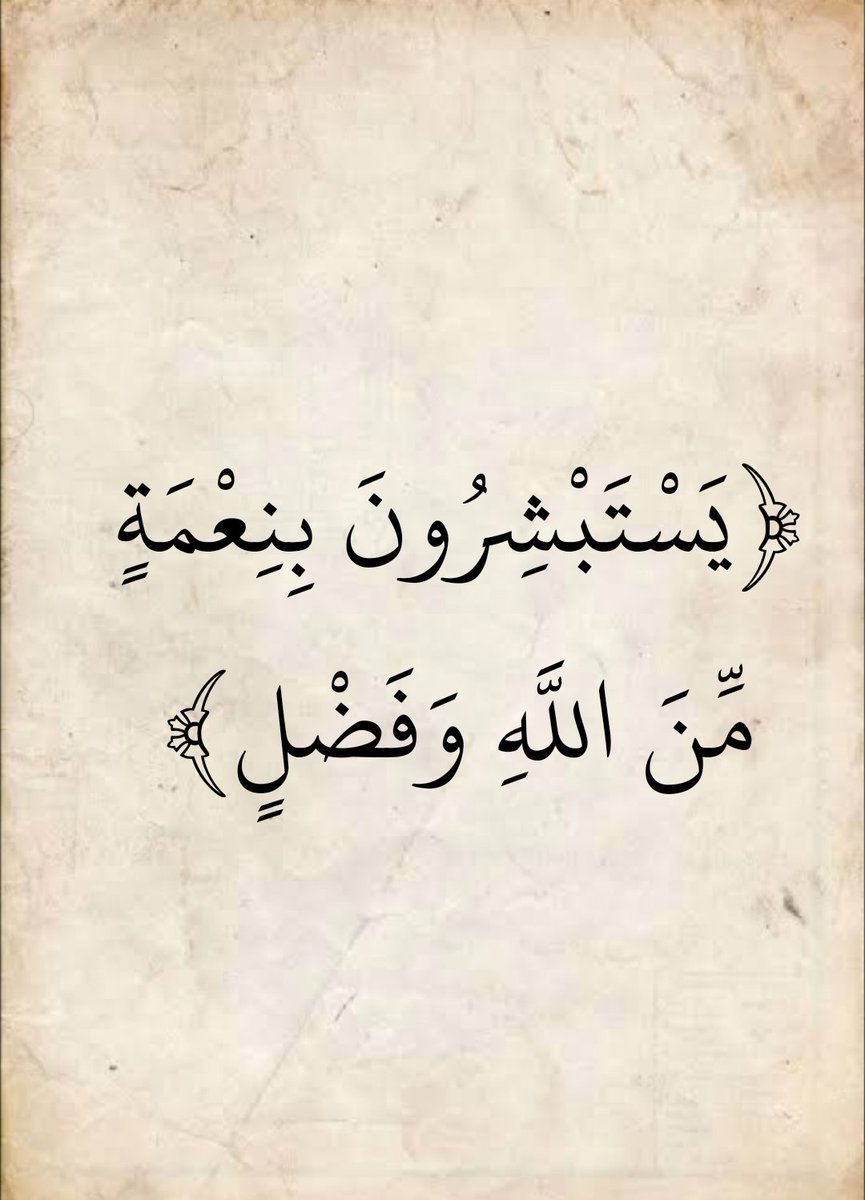 ﴿يَسْتَبْشِرُونَ بِنِعْمَةٍ
مِّنَ اللَّهِ وَفَضْلٍ﴾